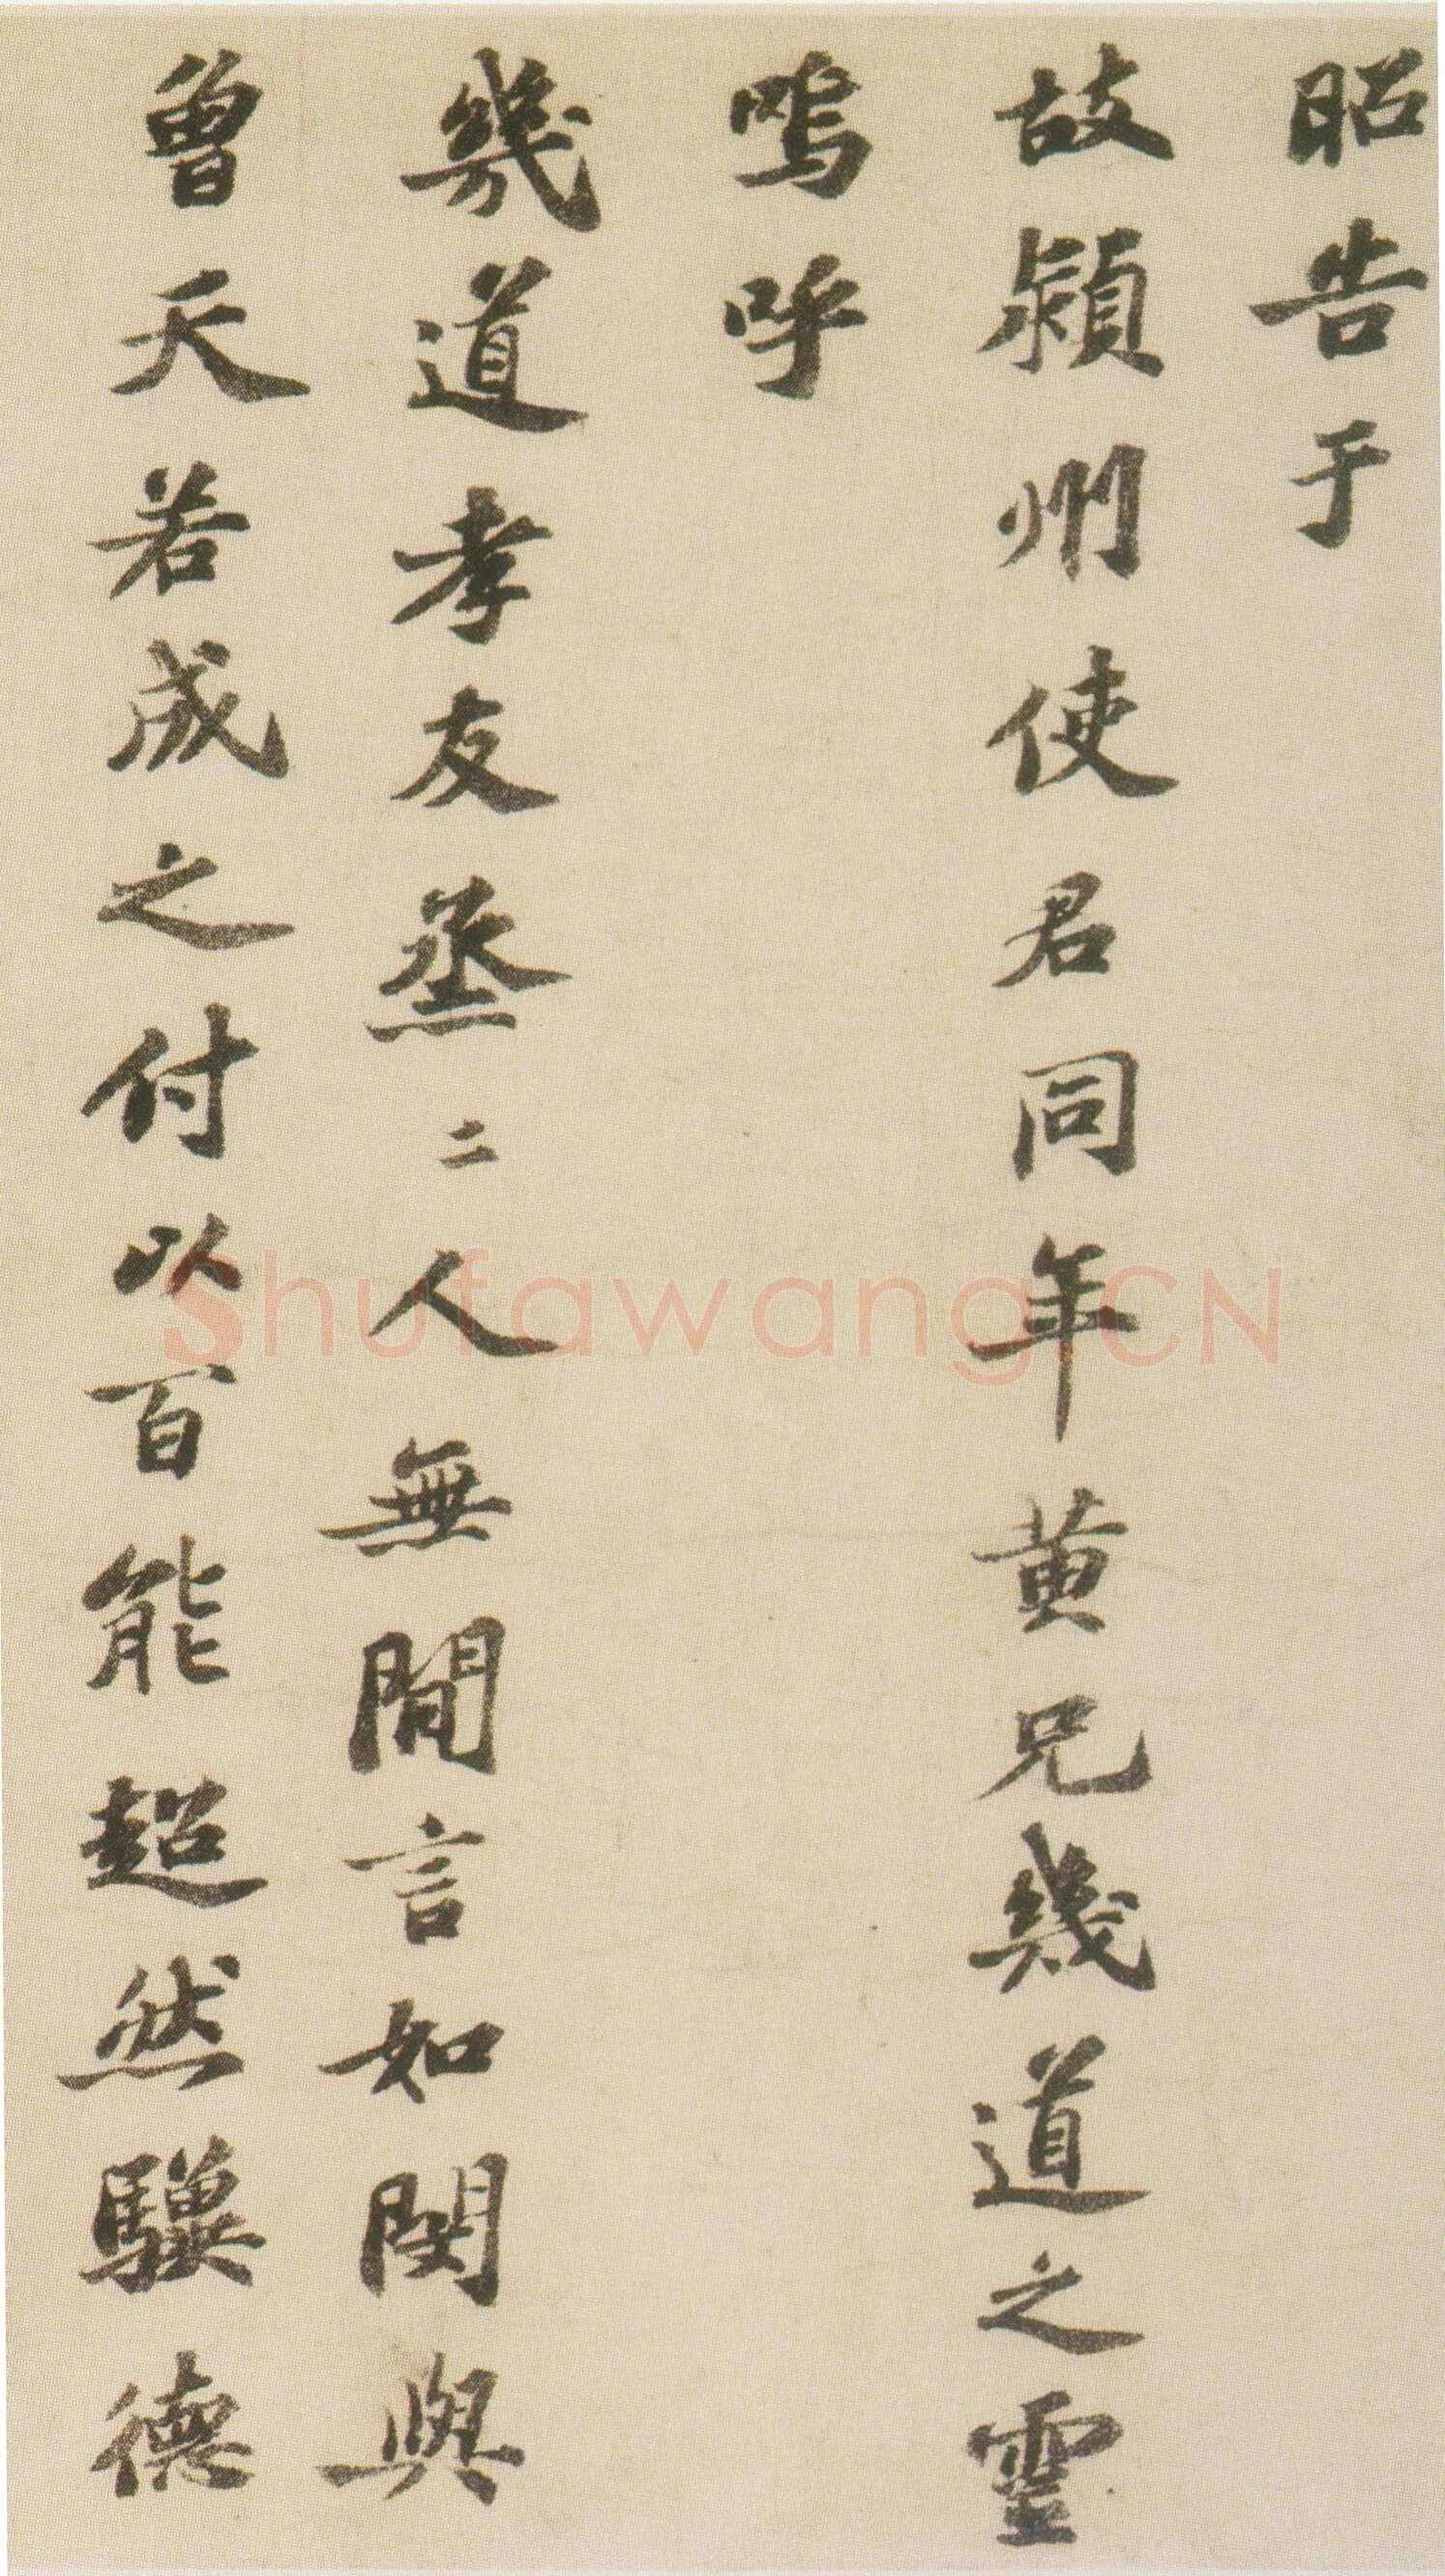 昭告于
故潁州使君同年黄兄幾道之靈
嗚呼
幾道孝友烝二人無閒言如閔與
曾天若成之付以百能超然驥德
Shufawang.CN